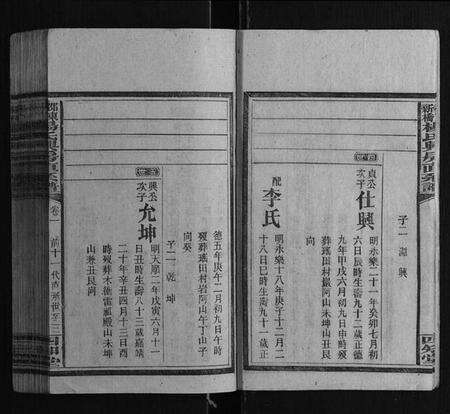 子二 興
貞公次子 仕興
明永樂二十一年癸卯七月初
六日辰時生壽九十二歲正德
九年甲戌六月初九日申時歿
葬瑤田村嚴阿山未坤山丑艮
向
配 李氏
明永樂十八年庚子十二月二
十八日巳時生壽九十一歲正
德五年庚午二月初九日午時
歿葬瑤田村岩阿山午丁山子
向癸
子二 乾 坤
興公次子 允坤
明天順二年戊寅六月十一
日丑時生壽八十三歲嘉靖
二十年辛丑四月十三日酉
時歿葬木衝雷祖殿山未坤
山兼丑艮向
卷
前十一